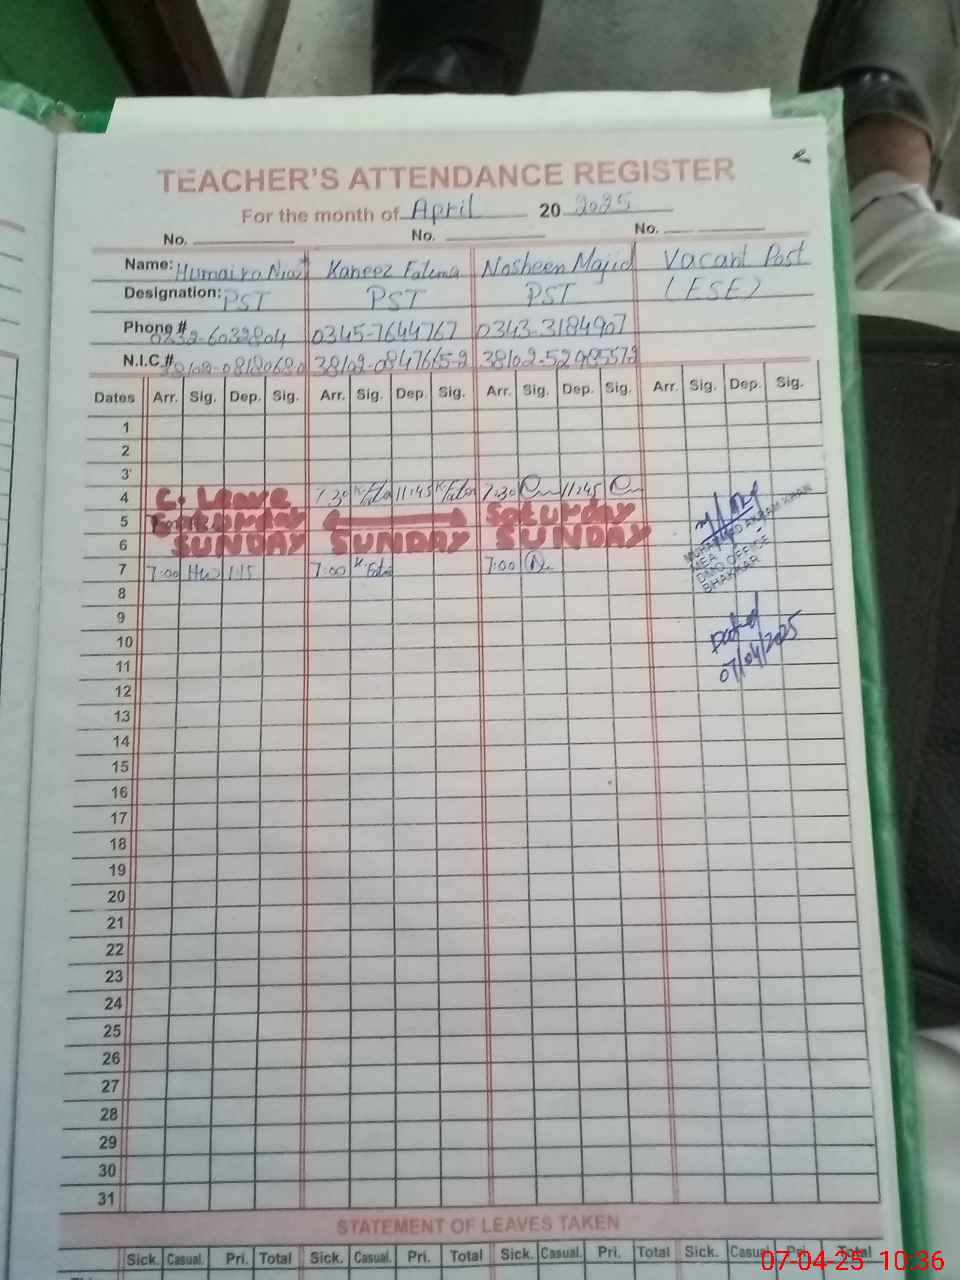 TEACHER'S ATTENDANCE REGISTER
For the month of April 20 2025
No. No. No.
Name: Humaira Niaz Kaneez Fatema Nosheen Majid Vacant Post
Designation: PST PST PST (ESE)
Phone # 0345-7644767 0343-3184907
N.I.C.# 38102-0847615-2
Dates Arr. Sig. Dep. Sig. Arr. Sig. Dep. Sig. Arr. Sig. Dep. Sig. Arr. Sig. Dep. Sig.
1
2
3
4 C. Leave 7:30 K Fatema 11:45 K Fatema 7:30 11:45
5 Saturday
6 SUNDAY SUNDAY SUNDAY
7 7:00 1:15 7:00 K Fatema 7:00
MUHAMMAD AKRAM KHAN
MEA
DMO OFFICE
BHAKKAR
8
9
10
Dated
07/04/2025
11
12
13
14
15
16
17
18
19
20
21
22
23
24
25
26
27
28
29
30
31
STATEMENT OF LEAVES TAKEN
Sick. Casual. Pri. Total Sick. Casual. Pri. Total Sick. Casual. Pri. Total Sick. Casual Pri. Total
07-04-25 10:36